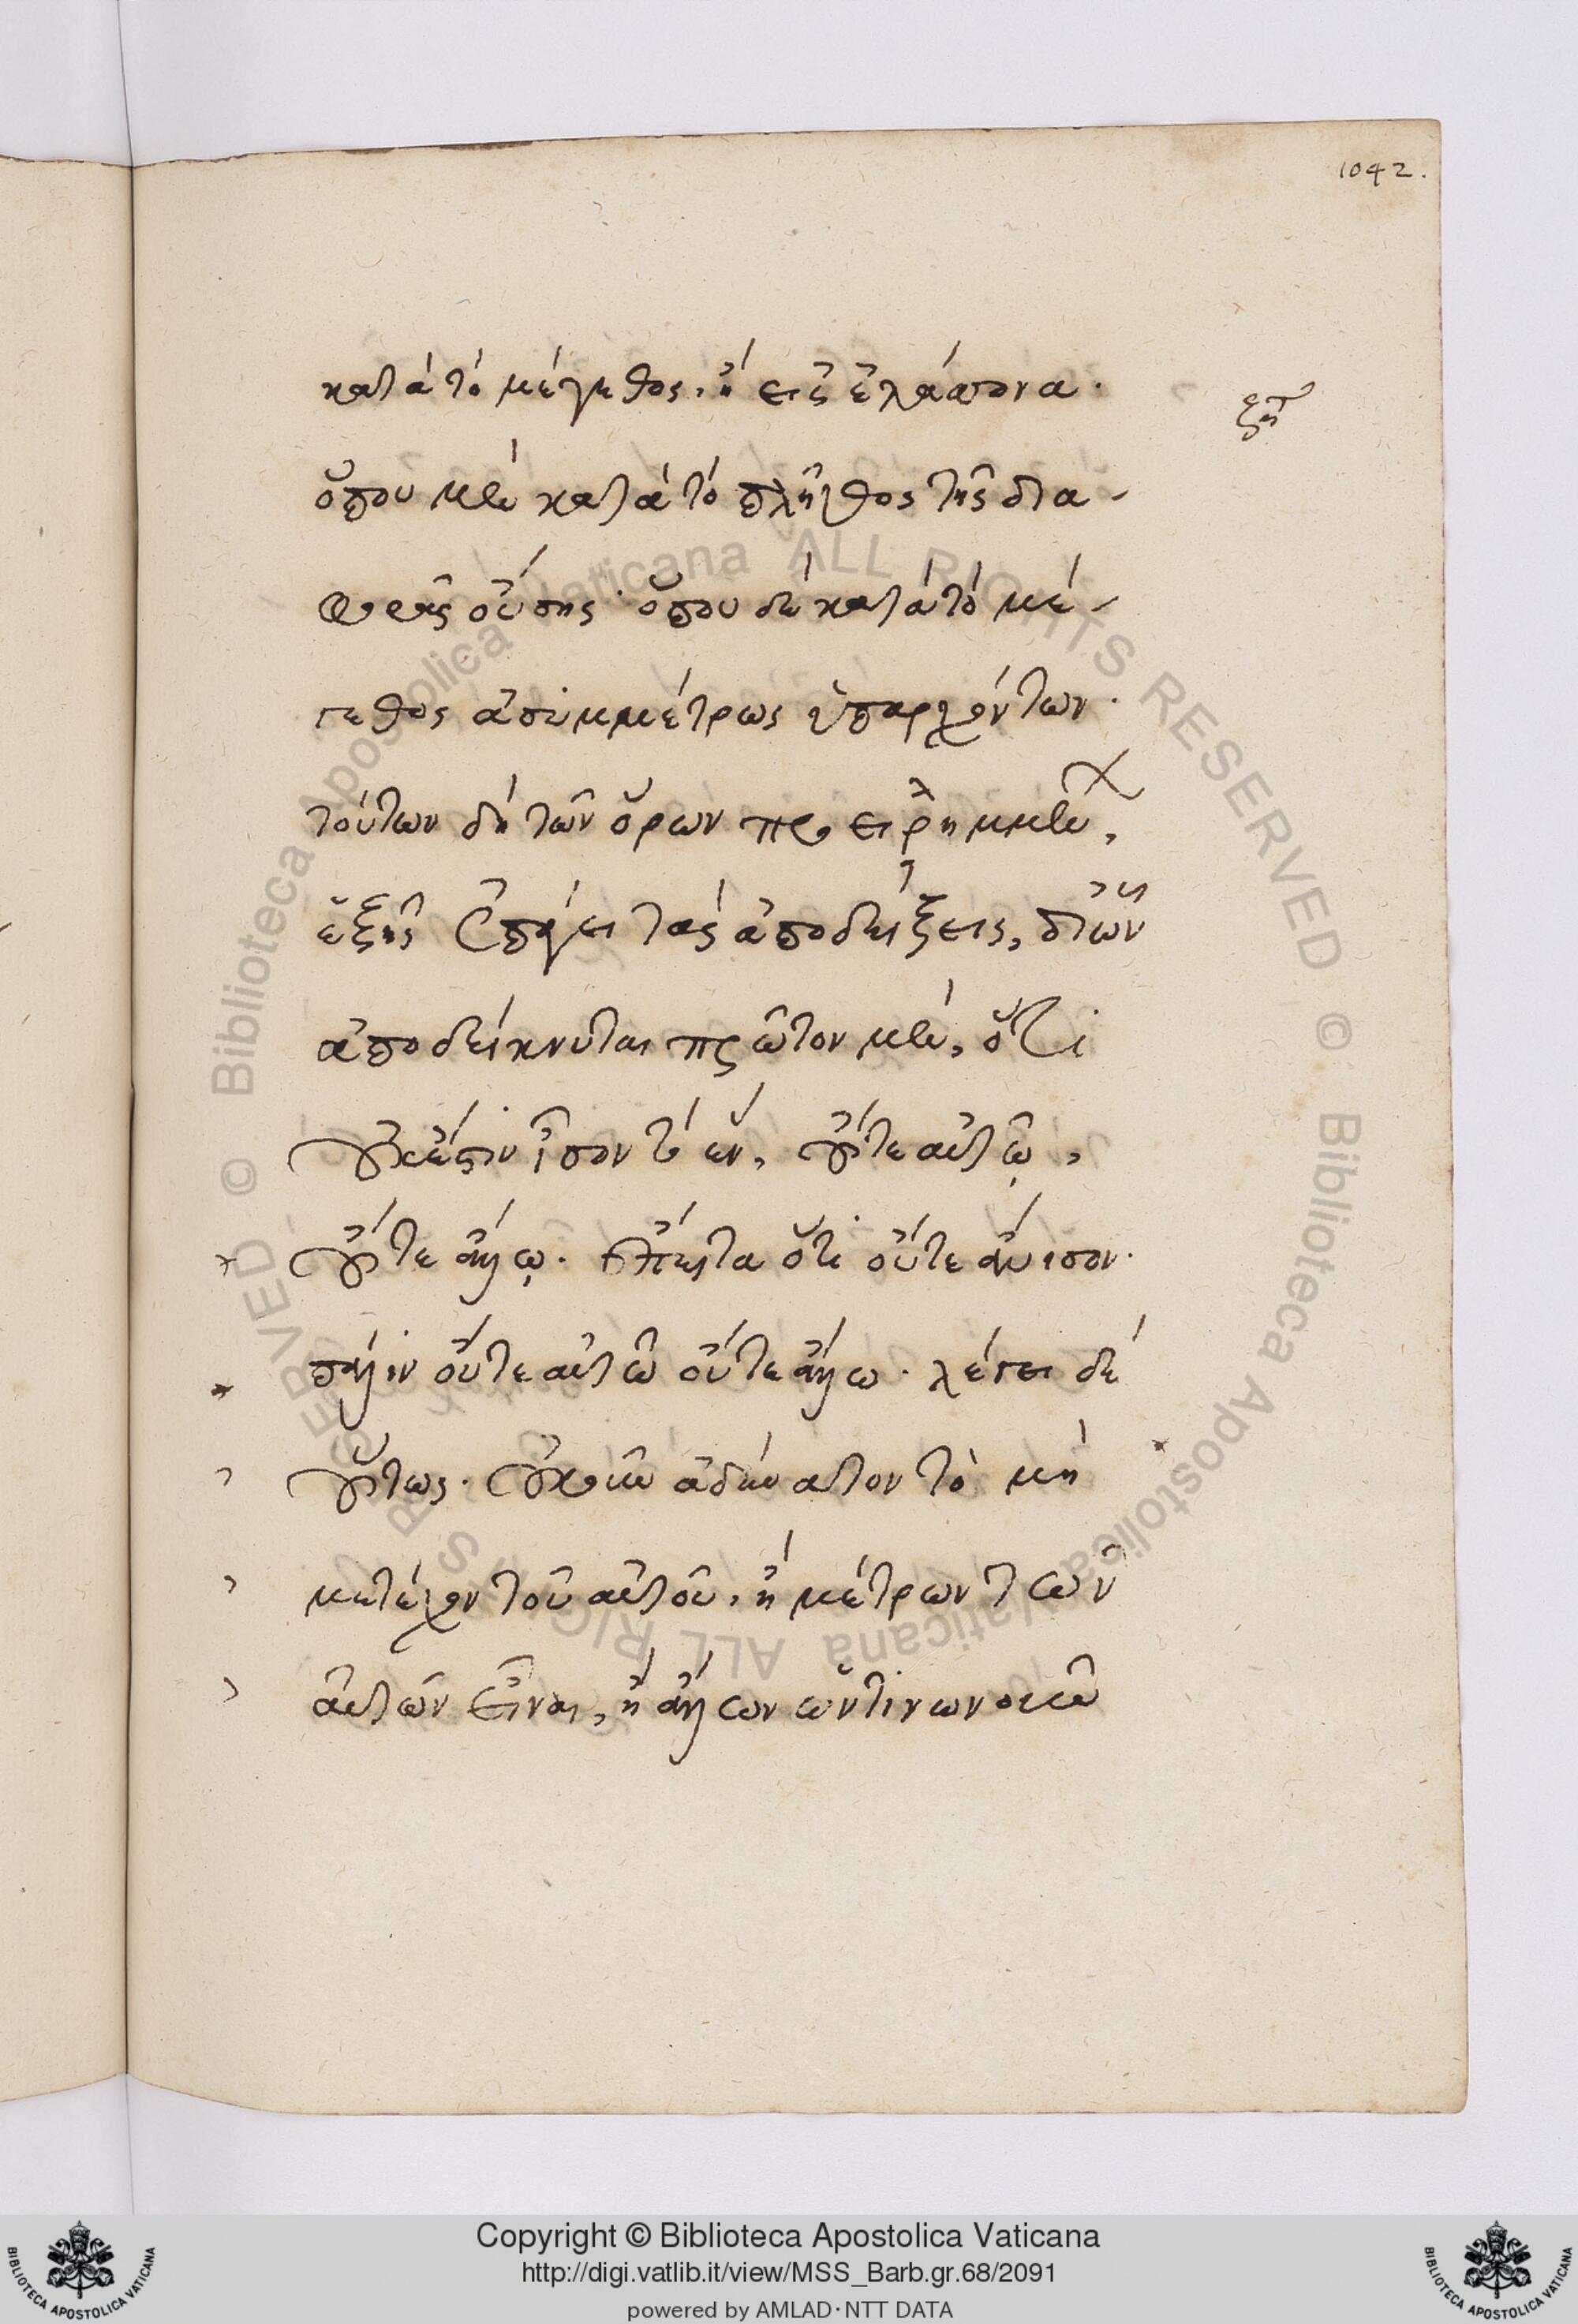 1042.
κατὰ τὸ μέγεθος, ἢ εἰς ἐλάττονα.
ζητ
ὅπου μὲν κατὰ τὸ πλῆθος τῆς δια-
φορᾶς οὔσης· ὅπου δὲ κατὰ τὸ μέ-
γεθος ἀσυμμέτρως ὑπαρχόντων.
τούτων δὴ τῶν ὅρων προειλημμέν,
ἑξῆς ἐπάγει τὰς ἀποδείξεις, δι' ὧν
ἀποδείκνυται πρῶτον μὲν, ὅτι
οὐκ ἔστιν ἴσον τὸ ἕν, οὔτε αὐτῷ,
οὔτε ἄλλῳ. ἔπειτα ὅτι οὔτε ἄνισον.
πάλιν οὔτε αὐτῶ οὔτε ἄλλω. λέγει δὲ
οὕτως. οὐκοῦν ἀδύνατον τὸ μὴ
μετέχον τοῦ αὐτοῦ, ἢ μέτρων τῶν
αὐτῶν εἶναι, ἢ ἄλλων ὡντινωνοῦν
Copyright © Biblioteca Apostolica Vaticana
http://digi.vatlib.it/view/MSS_Barb.gr.68/2091
powered by AMLAD·NTT DATA
BIBLIOTECA APOSTOLICA VATICANA
BIBLIOTECA APOSTOLICA VATICANA
© Biblioteca Apostolica Vaticana ALL RIGHTS RESERVED © Biblioteca Apostolica Vaticana ALL RIGHTS RESERVED